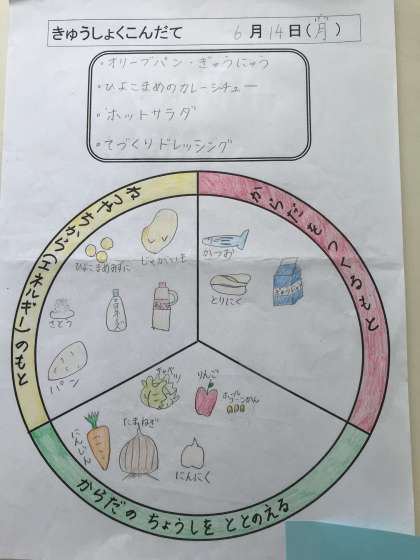 きゅうしょくこんだて 6月14日(月)
げつ
・オリーブパン・ぎゅうにゅう
・ひよこまめのカレーシチュー
・ホットサラダ
・てづくりドレッシング
ねつやちから(エネルギー)のもと
からだをつくるもと
ひよこまめ
じゃがいも
かつお
さとう
マヨネーズ
とりにく
ぎゅうにゅう
パン
キャベツ
りんご
ホールコーンかん
にんじん
たまねぎ
にんにく
からだのちょうしをととのえる